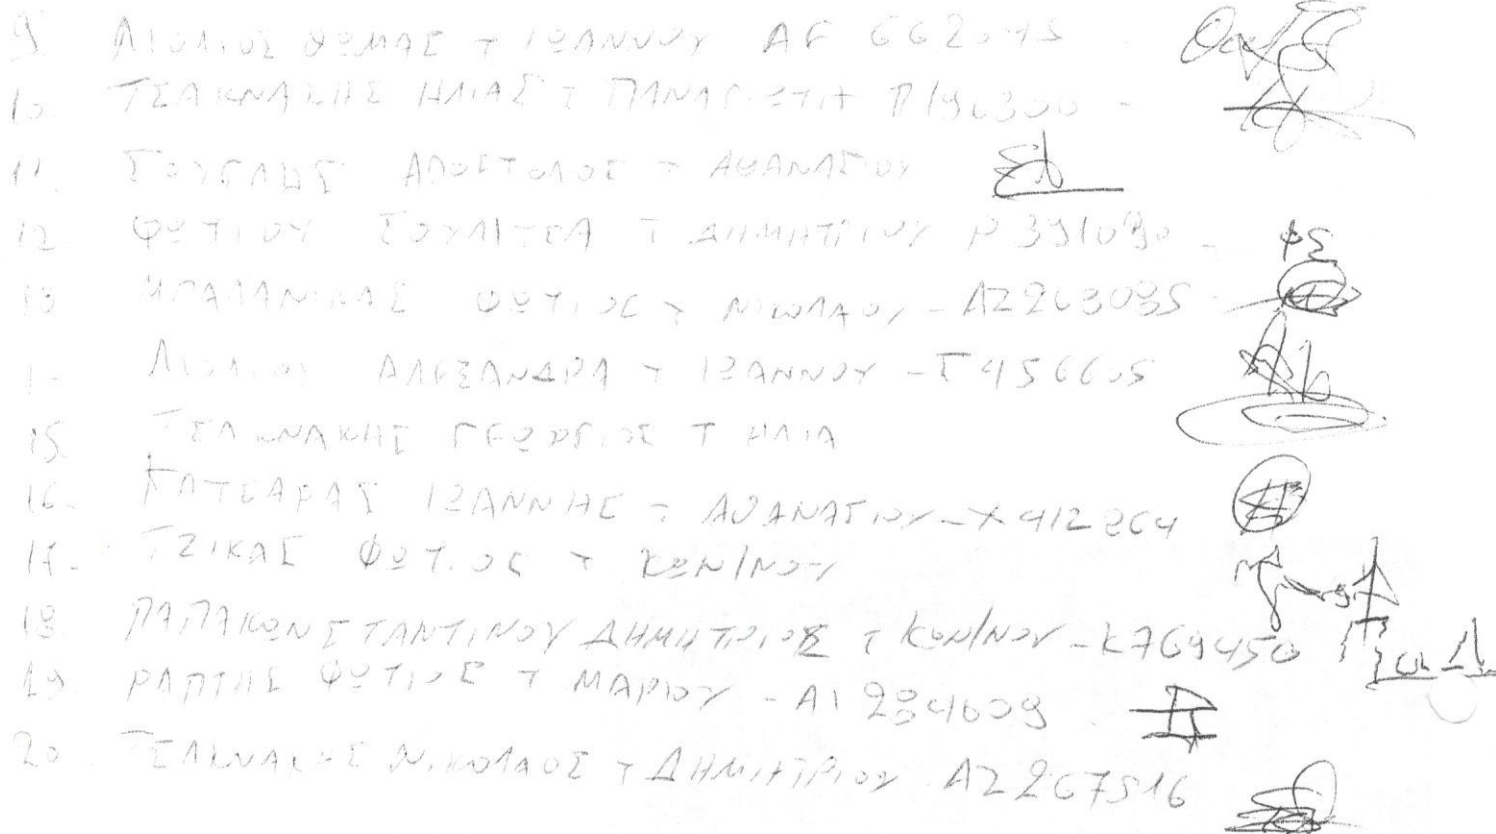 9 ΛΙΟΛΙΟΣ ΘΩΜΑΣ τ ΙΩΑΝΝΟΥ ΑΕ 662045 -
10. ΤΣΑΚΝΑΚΗΣ ΗΛΙΑΣ τ ΠΑΝΑΓΙΩΤΗ Π196300 -
11. ΣΟΥΓΛΗΣ ΑΠΟΣΤΟΛΟΣ τ ΑΘΑΝΑΣΙΟΥ
12. ΦΩΤΙΟΥ ΣΟΥΛΙΤΣΑ τ ΔΗΜΗΤΡΙΟΥ Ρ391090 - ΦΣ
13 ΦΩΤΙΟΣ τ ΝΙΚΟΛΑΟΥ - ΑΖ263035 -
ΛΙΟΛΙΟΥ ΑΛΕΞΑΝΔΡΑ τ ΙΩΑΝΝΟΥ - Σ456605
15. ΤΣΑΚΝΑΚΗΣ ΓΕΩΡΓΙΟΣ Τ ΗΛΙΑ
16. ΚΑΤΣΑΡΑΣ ΙΩΑΝΝΗΣ τ ΑΘΑΝΑΣΙΟΥ - Χ412264
17. ΤΖΙΚΑΣ ΦΩΤΙΟΣ τ ΚΩΝ/ΝΟΥ
18. ΠΑΠΑΚΩΝΣΤΑΝΤΙΝΟΥ ΔΗΜΗΤΡΙΟΣ τ ΚΩΝ/ΝΟΥ - Κ769450
19. ΡΑΠΤΗΣ ΦΩΤΙΟΣ τ ΜΑΡΙΟΥ - ΑΙ 284609
20. ΤΣΑΚΝΑΚΗΣ ΝΙΚΟΛΑΟΣ τ ΔΗΜΗΤΡΙΟΥ ΑΖ267516